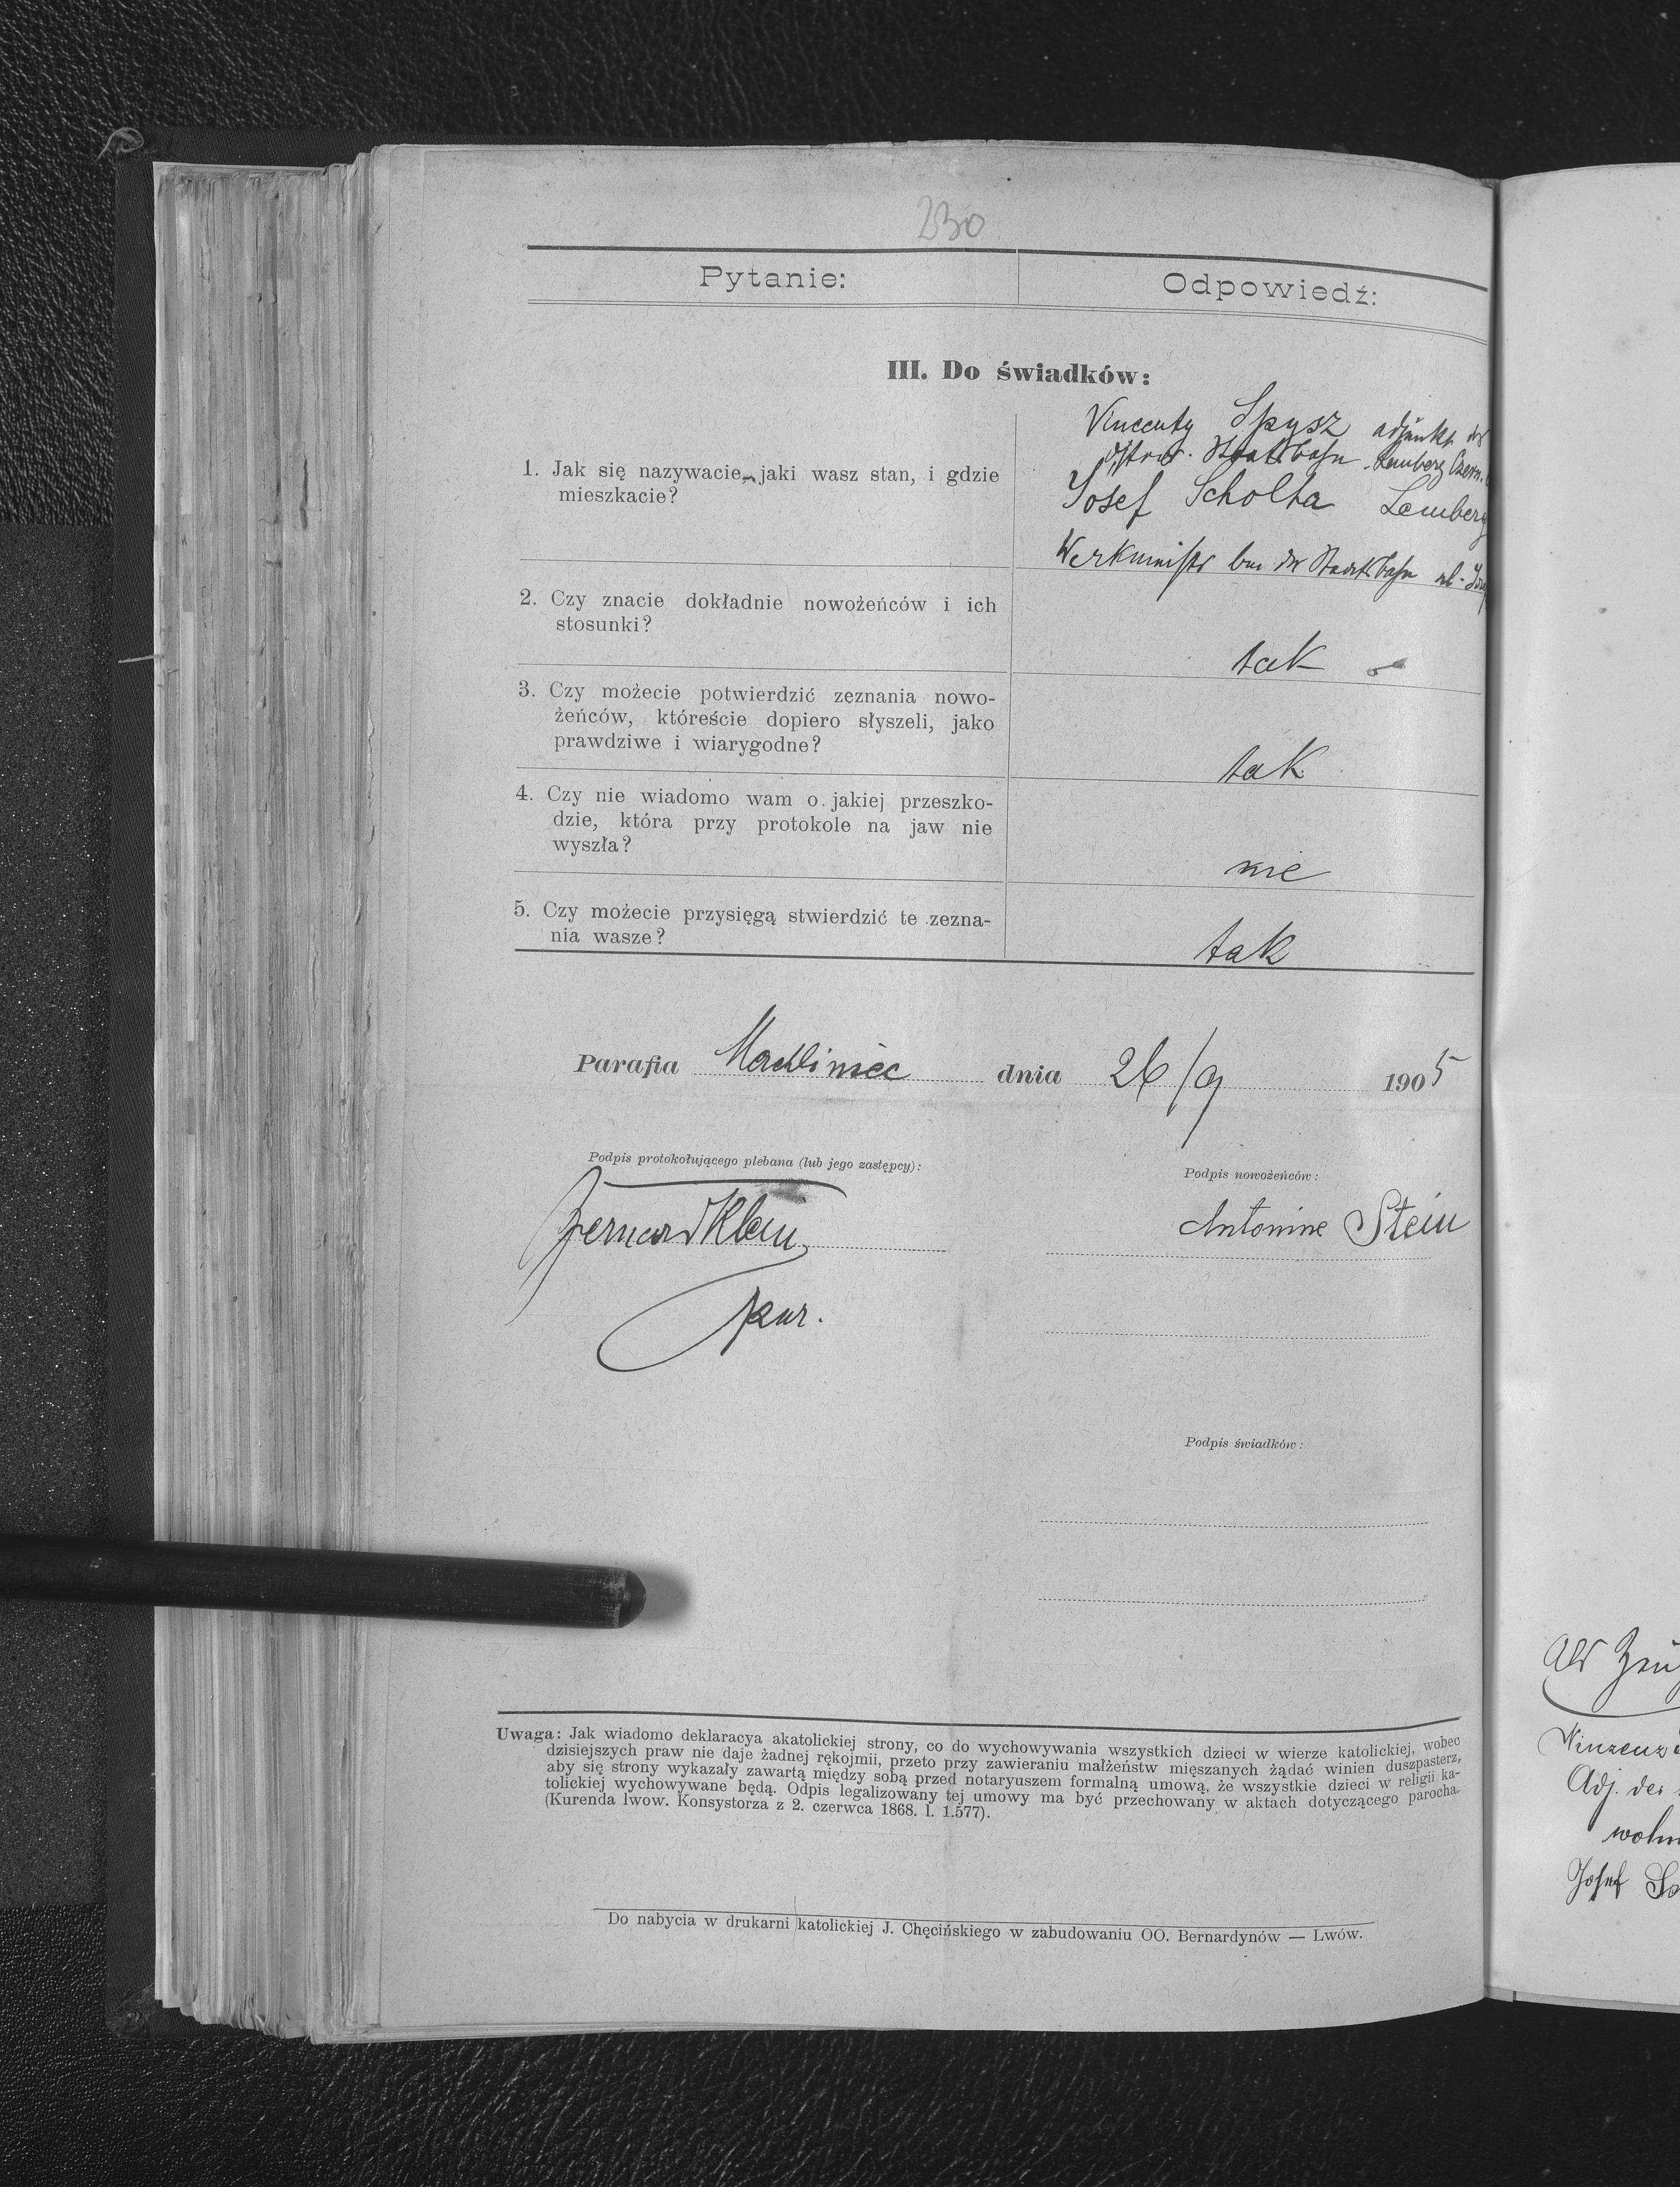 230
Pytanie:
Odpowiedź:
III. Do świadków:
1. Jak się nazywacie, jaki wasz stan, i gdzie
mieszkacie?
Vincenty Spysz adjunkt der
österr. Staatsbahn Lemberg Czern.
Josef Scholta Lemberg
Werkmeistr bei der Staatsbahn
2. Czy znacie dokładnie nowożeńców i ich
stosunki?
tak
3. Czy możecie potwierdzić zeznania nowo-
żeńców, któreście dopiero słyszeli, jako
prawdziwe i wiarygodne?
tak
4. Czy nie wiadomo wam o jakiej przeszko-
dzie, która przy protokole na jaw nie
wyszła?
nie
5. Czy możecie przysięgą stwierdzić te zezna-
nia wasze?
tak
Parafia Machliniec dnia 26/9 1905
Podpis protokołującego plebana (lub jego zastępcy):
Podpis nowożeńców:
Bernard Klein
Antonine Stein
Podpis świadków:
Uwaga: Jak wiadomo deklaracya akatolickiej strony, co do wychowywania wszystkich dzieci w wierze katolickiej, wobec
dzisiejszych praw nie daje żadnej rękojmii, przeto przy zawieraniu małżeństw mięszanych żądać winien duszpasterz,
aby się strony wykazały zawartą między sobą przed notaryuszem formalną umową, że wszystkie dzieci w religii ka-
tolickiej wychowywane będą. Odpis legalizowany tej umowy ma być przechowany w aktach dotyczącego parocha.
(Kurenda lwow. Konsystorza z 2. czerwca 1868. l. 1.577).
Do nabycia w drukarni katolickiej J. Chęcińskiego w zabudowaniu OO. Bernardynów — Lwów.
Als
Vinzenz
Adj. der
wohn
Josef